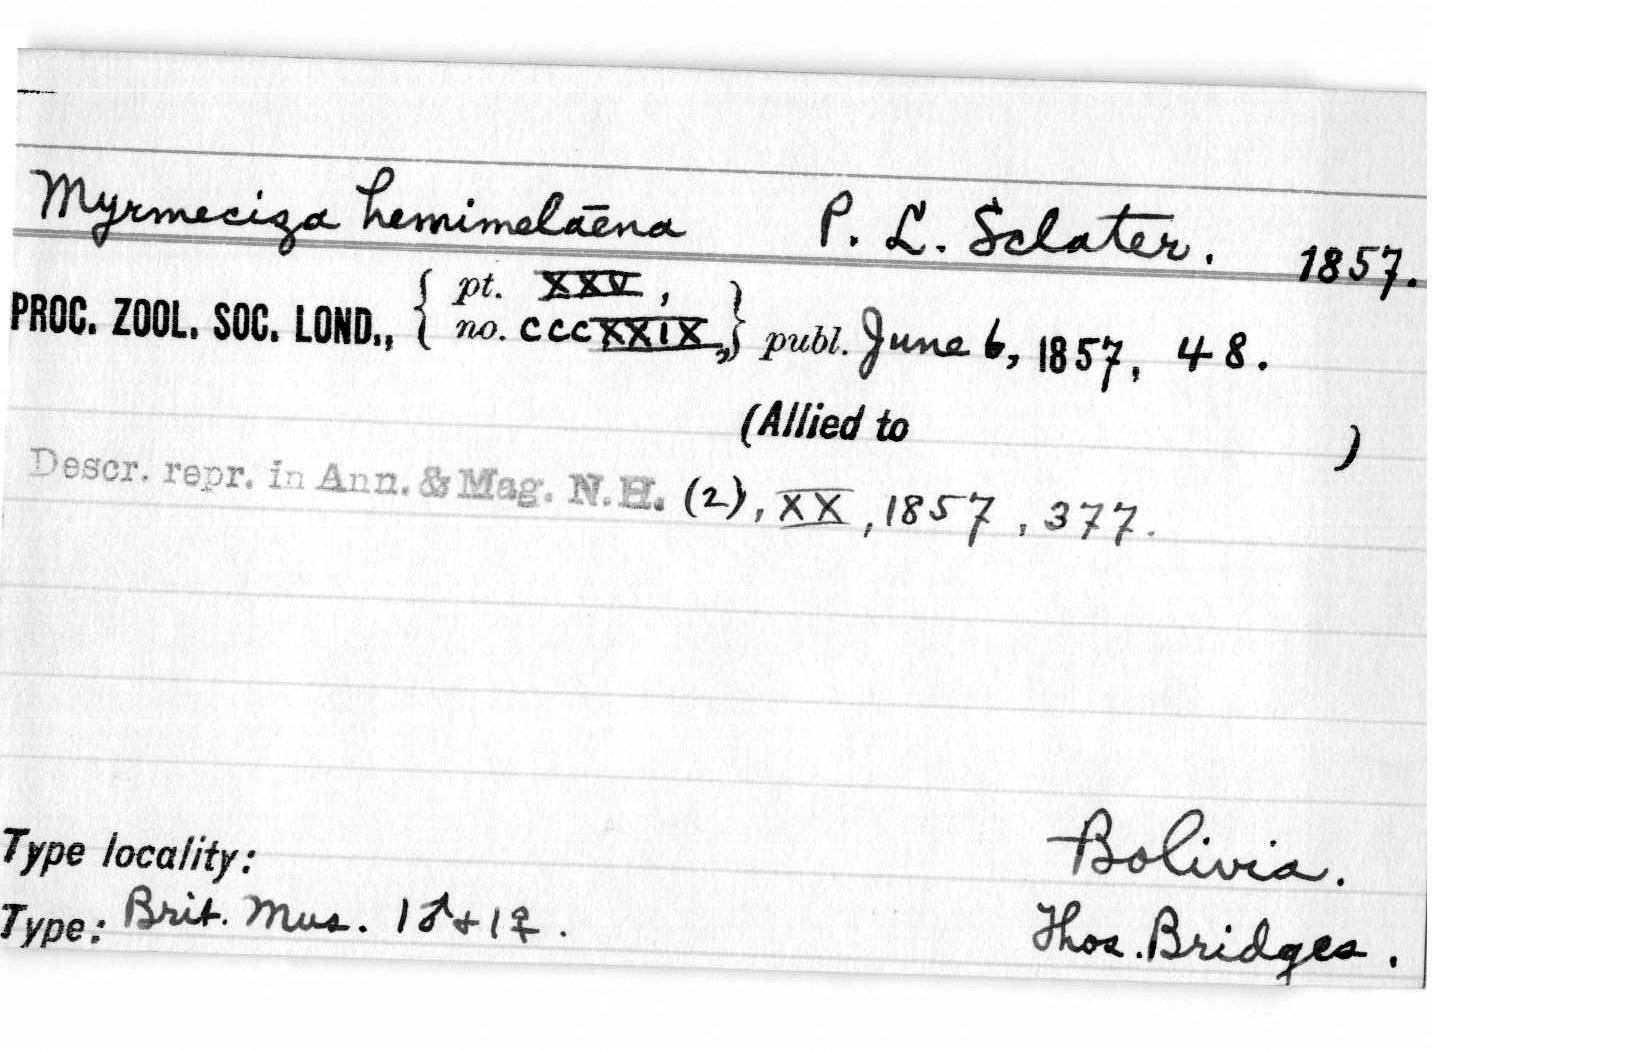 Myrmeciza hemimelāena P. L. Sclater. 1857.
PROC. ZOOL. SOC. LOND., { pt. XXV, no. CCCXXIX, } publ. June 6, 1857, 48.
(Allied to )
Descr. repr. in Ann. & Mag. N.H. (2), XX, 1857, 377.
Type locality: Bolivia.
Type: Brit. Mus. 1♂+1♀. Thos. Bridges.